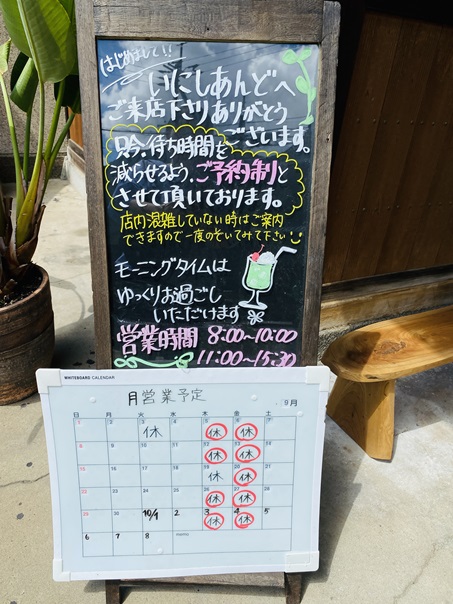 はじめまして!!
いにしあんどへ
ご来店下さりありがとう
ございます。
只今、待ち時間を
減らせるよう、ご予約制と
させて頂いております。
店内混雑していない時はご案内
できますので一度のぞいてみて下さい
モーニングタイムは
ゆっくりお過ごし
いただけます
営業時間 8:00~10:00
11:00~15:30
WHITEBOARD CALENDAR
月営業予定
9月
日 月 火 水 木 金 土
1 2 3 4 5 6 7
休 休 休
8 9 10 11 12 13 14
休 休
15 16 17 18 19 20 21
休 休
22 23 24 25 26 27 28
休 休
29 30 10/1 2 3 4 5
休 休
6 7 8 memo